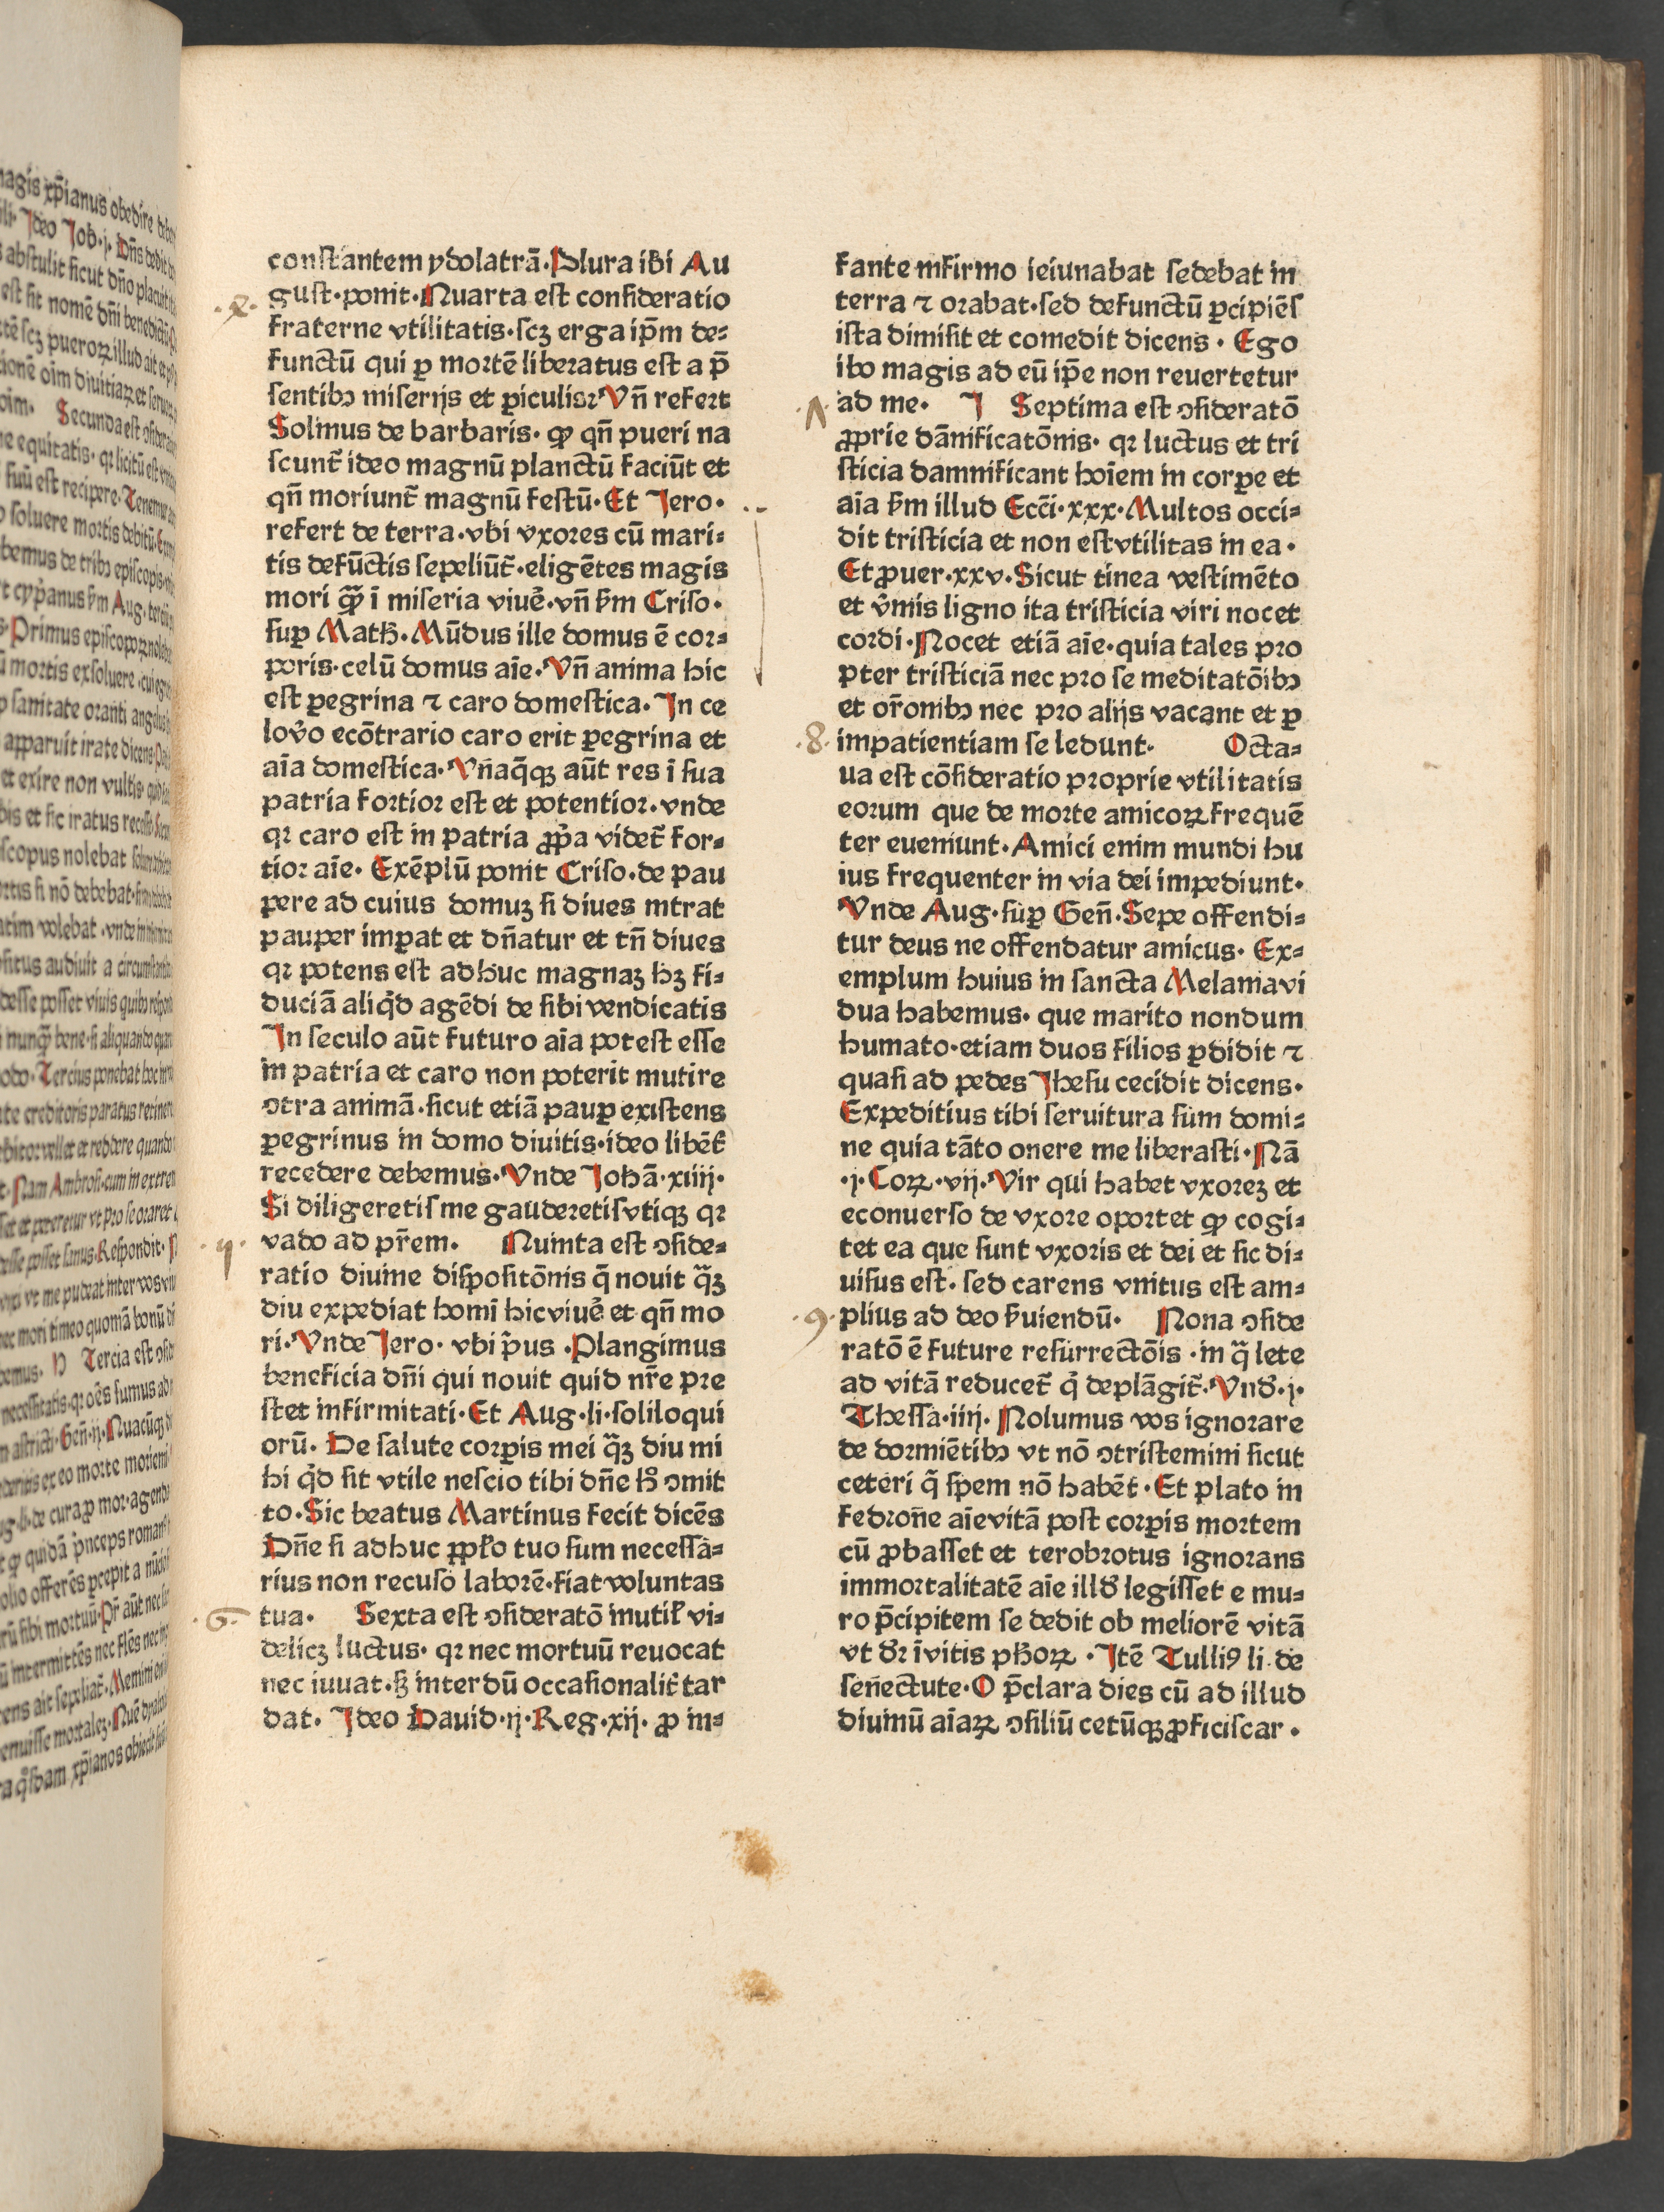 constantem ydolatrā·Plura ibi Au
gust·ponit·Nuarta est consideratio
fraterne vtilitatis·scꝫ erga ip̄m de⸗
functū qui ꝑ mortē liberatus est a p̄
sentibꝰ miserijs et ꝑiculisꝛ Vn̄ refert
Solinus de barbaris· ꝙ qn̄ pueri na
scunt̄ ideo magnū planctū faciūt et
qn̄ moriunt̄ magnū festū· Et Jero·
refert de terra·vbi vxores cū mari⸗
tis defūctis sepeliūt̄·eligētes magis
mori ꝙ̄ ī miseria viuē·vn̄ ẜm Criso·
suꝑ Matħ·Mūdus ille domus ē cor⸗
poris·celū domus aīe·Vn̄ anima hic
est ꝑegrina ⁊ caro domestica· In ce
lov̊o ecōtrario caro erit ꝑegrina et
aīa domestica·Vn̄aq̄qꝫ aūt res ī sua
patria fortior est et potentior·vnde
qꝛ caro est in patria ꝓp̄a videt̄ for⸗
tior aīe· Exēplū ponit Criso·de pau
pere ad cuius domuꝫ si diues intrat
pauper imꝑat et dn̄atur et tn̄ diues
qꝛ potens est adhuc magnaꝫ hꝫ fi⸗
duciā aliq̇d agēdi de sibi vendicatis
In seculo aūt futuro aīa potest esse
in patria et caro non poterit mutire
ↄtra animā·sicut etiā pauꝑ existens
ꝑegrinus in domo diuitis·ideo libēt̉
recedere debemus·Vnde Johā·xiiij·
Si diligeretis me gauderetis vtiqꝫ qꝛ
vado ad pr̄em· Nuinta est ↄside⸗
ratio diuine dispositōnis q̄ nouit q̄ꝫ
diu expediat homī hic viuē et qn̄ mo
ri·Vnde Jero· vbi p̄us ·Plangimus
beneficia dn̄i qui nouit quid nr̄e pre
stet infirmitati·Et Aug·li·soliloqui
orū· De salute corꝑis mei q̄ꝫ diu mi
hi q̇d sit vtile nescio tibi dn̄e h̊ ↄmit
to·Sic beatus Martinus fecit dicēs
Dn̄e si adhuc ꝓpl̄o tuo sum necessa⸗
rius non recuso laborē·fiat voluntas
tua· Sexta est ↄsideratō inutil̉ vi⸗
delicꝫ luctus· qꝛ nec mortuū reuocat
nec iuuat·sꝫ interdū occasionalit̉ tar
dat· Ideo Dauid·ij·Reg·xij· ꝓ in⸗
fante infirmo ieiunabat sedebat in
terra ⁊ orabat·sed defunctū ꝑcipiēs
ista dimisit et comedit dicens · Ego
ibo magis ad eū ip̄e non reuertetur
ad me· J Septima est ↄsideratō
ꝓprie dānificatōnis· qꝛ luctus et tri
sticia damnificant hoīem in corꝑe et
aīa ẜm illud Ecc̄i·xxx·Multos occi⸗
dit tristicia et non est vtilitas in ea·
Et ꝓuer·xxv·Sicut tinea vestimēto
et v̄mis ligno ita tristicia viri nocet
cordi·Nocet etiā aīe·quia tales pro
pter tristiciā nec pro se meditatōibꝰ
et or̄onibꝰ nec pro alijs vacant et ꝑ
·8· impatientiam se ledunt· Octa⸗
ua est cōsideratio proprie vtilitatis
eorum que de morte amicoꝝ frequē
ter eueniunt·Amici enim mundi hu
ius frequenter in via dei impediunt·
Vnde Aug·suꝑ Gen̄·Sepe offendi⸗
tur deus ne offendatur amicus· Ex⸗
emplum huius in sancta Melania vi
dua habemus· que marito nondum
humato·etiam duos filios ꝑdidit ⁊
quasi ad pedes Jhesu cecidit dicens·
Expeditius tibi seruitura sum domi⸗
ne quia tāto onere me liberasti·Nā
·j·Corꝝ·vij·Vir qui habet vxoreꝫ et
econuerso de vxore oportet ꝙ cogi⸗
tet ea que sunt vxoris et dei et sic di⸗
uisus est· sed carens vnitus est am⸗
·9· plius ad deo ẜuiendū· Nona ↄside
ratō ē future resurrectōis ·in q̄ lete
ad vitā reducet̄ q̇ deplāgit̄·Vnd̉·j·
Thessa·iiij·Nolumus vos ignorare
de dormiētibꝰ vt nō ↄtristemini sicut
ceteri q̄ spem nō habēt·Et plato in
fedron̄e aīe vitā post corꝑis mortem
cū ꝓbasset et terobrotus ignorans
immortalitatē aīe illd̉ legisset e mu⸗
ro p̄cipitem se dedit ob meliorē vitā
vt dꝛ ī vitis pħoꝝ ·Itē Tulliꝰ li·de
sen̄ectute·O p̄clara dies cū ad illud
diuinū aīaꝝ ↄsiliū cetūqꝫ ꝓficiscar·